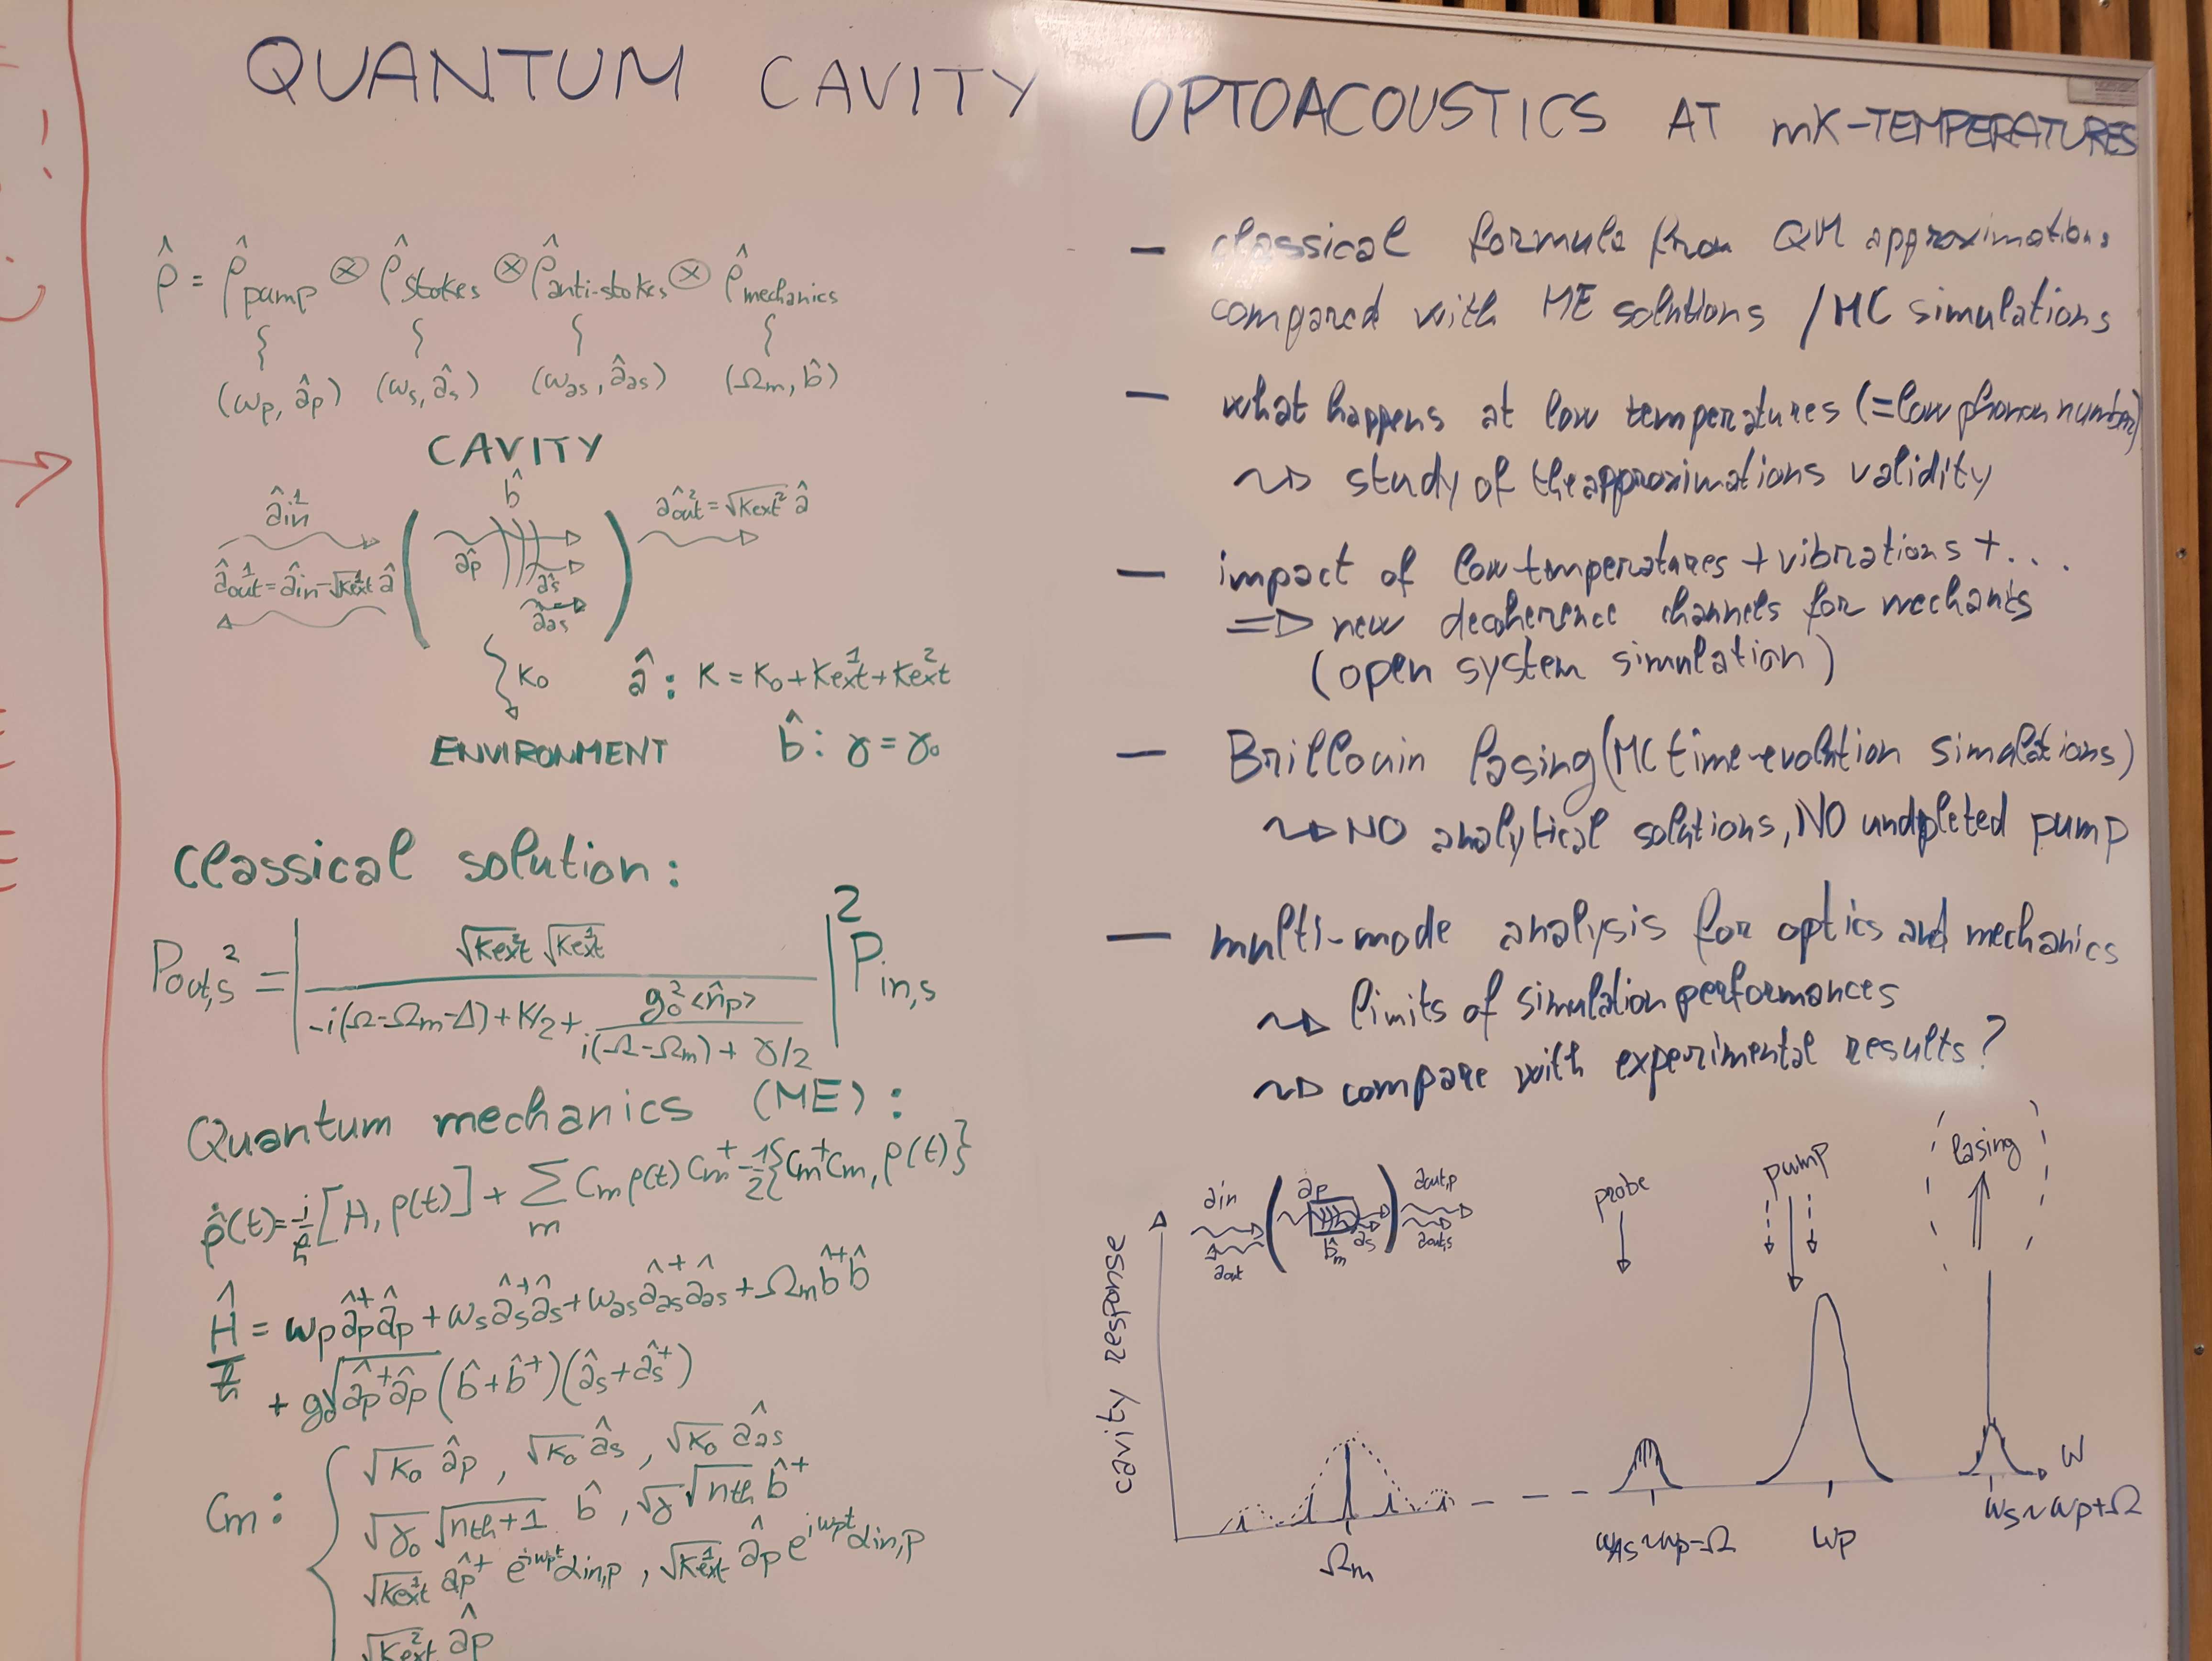 QUANTUM CAVITY OPTOACOUSTICS AT mK-TEMPERATURES
ρ̂ = ρ̂pump ⊗ ρ̂stokes ⊗ ρ̂anti-stokes ⊗ ρ̂mechanics
(ωp, âp) (ωs, âs) (ωas, âas) (Ωm, b̂)
CAVITY
b̂
âin¹
âout² = √kext² â
âout¹ = âin - √kext¹ â
âp
âs
âas
K₀
â : K = K₀ + Kext¹ + Kext²
ENVIRONMENT
b̂ : γ = γ₀
classical solution:
Pout,s² = | √kext² √kext¹ / ( -i(Ω-Ωm-Δ) + K/2 + g₀²<n̂p> / ( i(Ω-Ωm) + γ/2 ) ) |² Pin,s
Quantum mechanics (ME):
ρ̂̇(t) = -i/ħ [H, ρ(t)] + Σm Cm ρ(t) Cm⁺ - 1/2 {Cm⁺Cm, ρ(t)}
Ĥ/ħ = ωp âp⁺âp + ωs âs⁺âs + ωas âas⁺âas + Ωm b̂⁺b̂
+ g₀√âp⁺âp (b̂ + b̂⁺)(âs + âs⁺)
Cm : { √K₀ âp , √K₀ âs , √K₀ âas
√γ₀ √nth+1 b̂ , √γ √nth b̂⁺
√Kext¹ âp⁺ e^iωpt αin,p , √Kext¹ âp e^iωpt αin,p
√Kext² âp
- classical formula from QM approximations
compared with ME solutions / MC simulations
- what happens at low temperatures (=low phonon number)
~> study of the approximations validity
- impact of low temperatures + vibrations + ...
=> new decoherence channels for mechanis
(open system simulation)
- Brillouin lasing (MC time-evolution simulations)
~> NO analytical solutions, NO undpleted pump
- multi-mode analysis for optics and mechanics
~> limits of simulation performances
~> compare with experimental results?
ain
aout
ap
b̂m
as
aout,p
aout,s
probe
pump
lasing
cavity response
ω
Ωm
ωAS ~ ωp-Ω
ωp
ωs ~ ωp+Ω